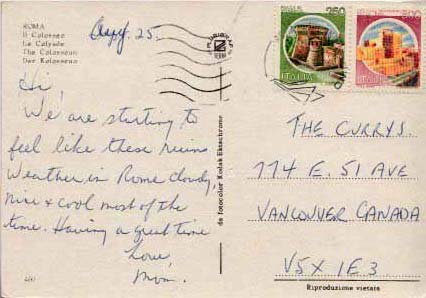 ROMA
Il Colosseo
Le Colysée
The Colosseum
Das Kolosseum
25.
Hi,
We are starting to
feel like these ruins
Weather in Rome cloudy,
nice & cool most of the
time. Having a great time
Love,
Mom.
da fotocolor Kodak Ektachrome
ITALIA
ITALIA
THE CURRYS.
774 E. 51 AVE
VANCOUVER CANADA
V5X 1E3
Riproduzione vietata